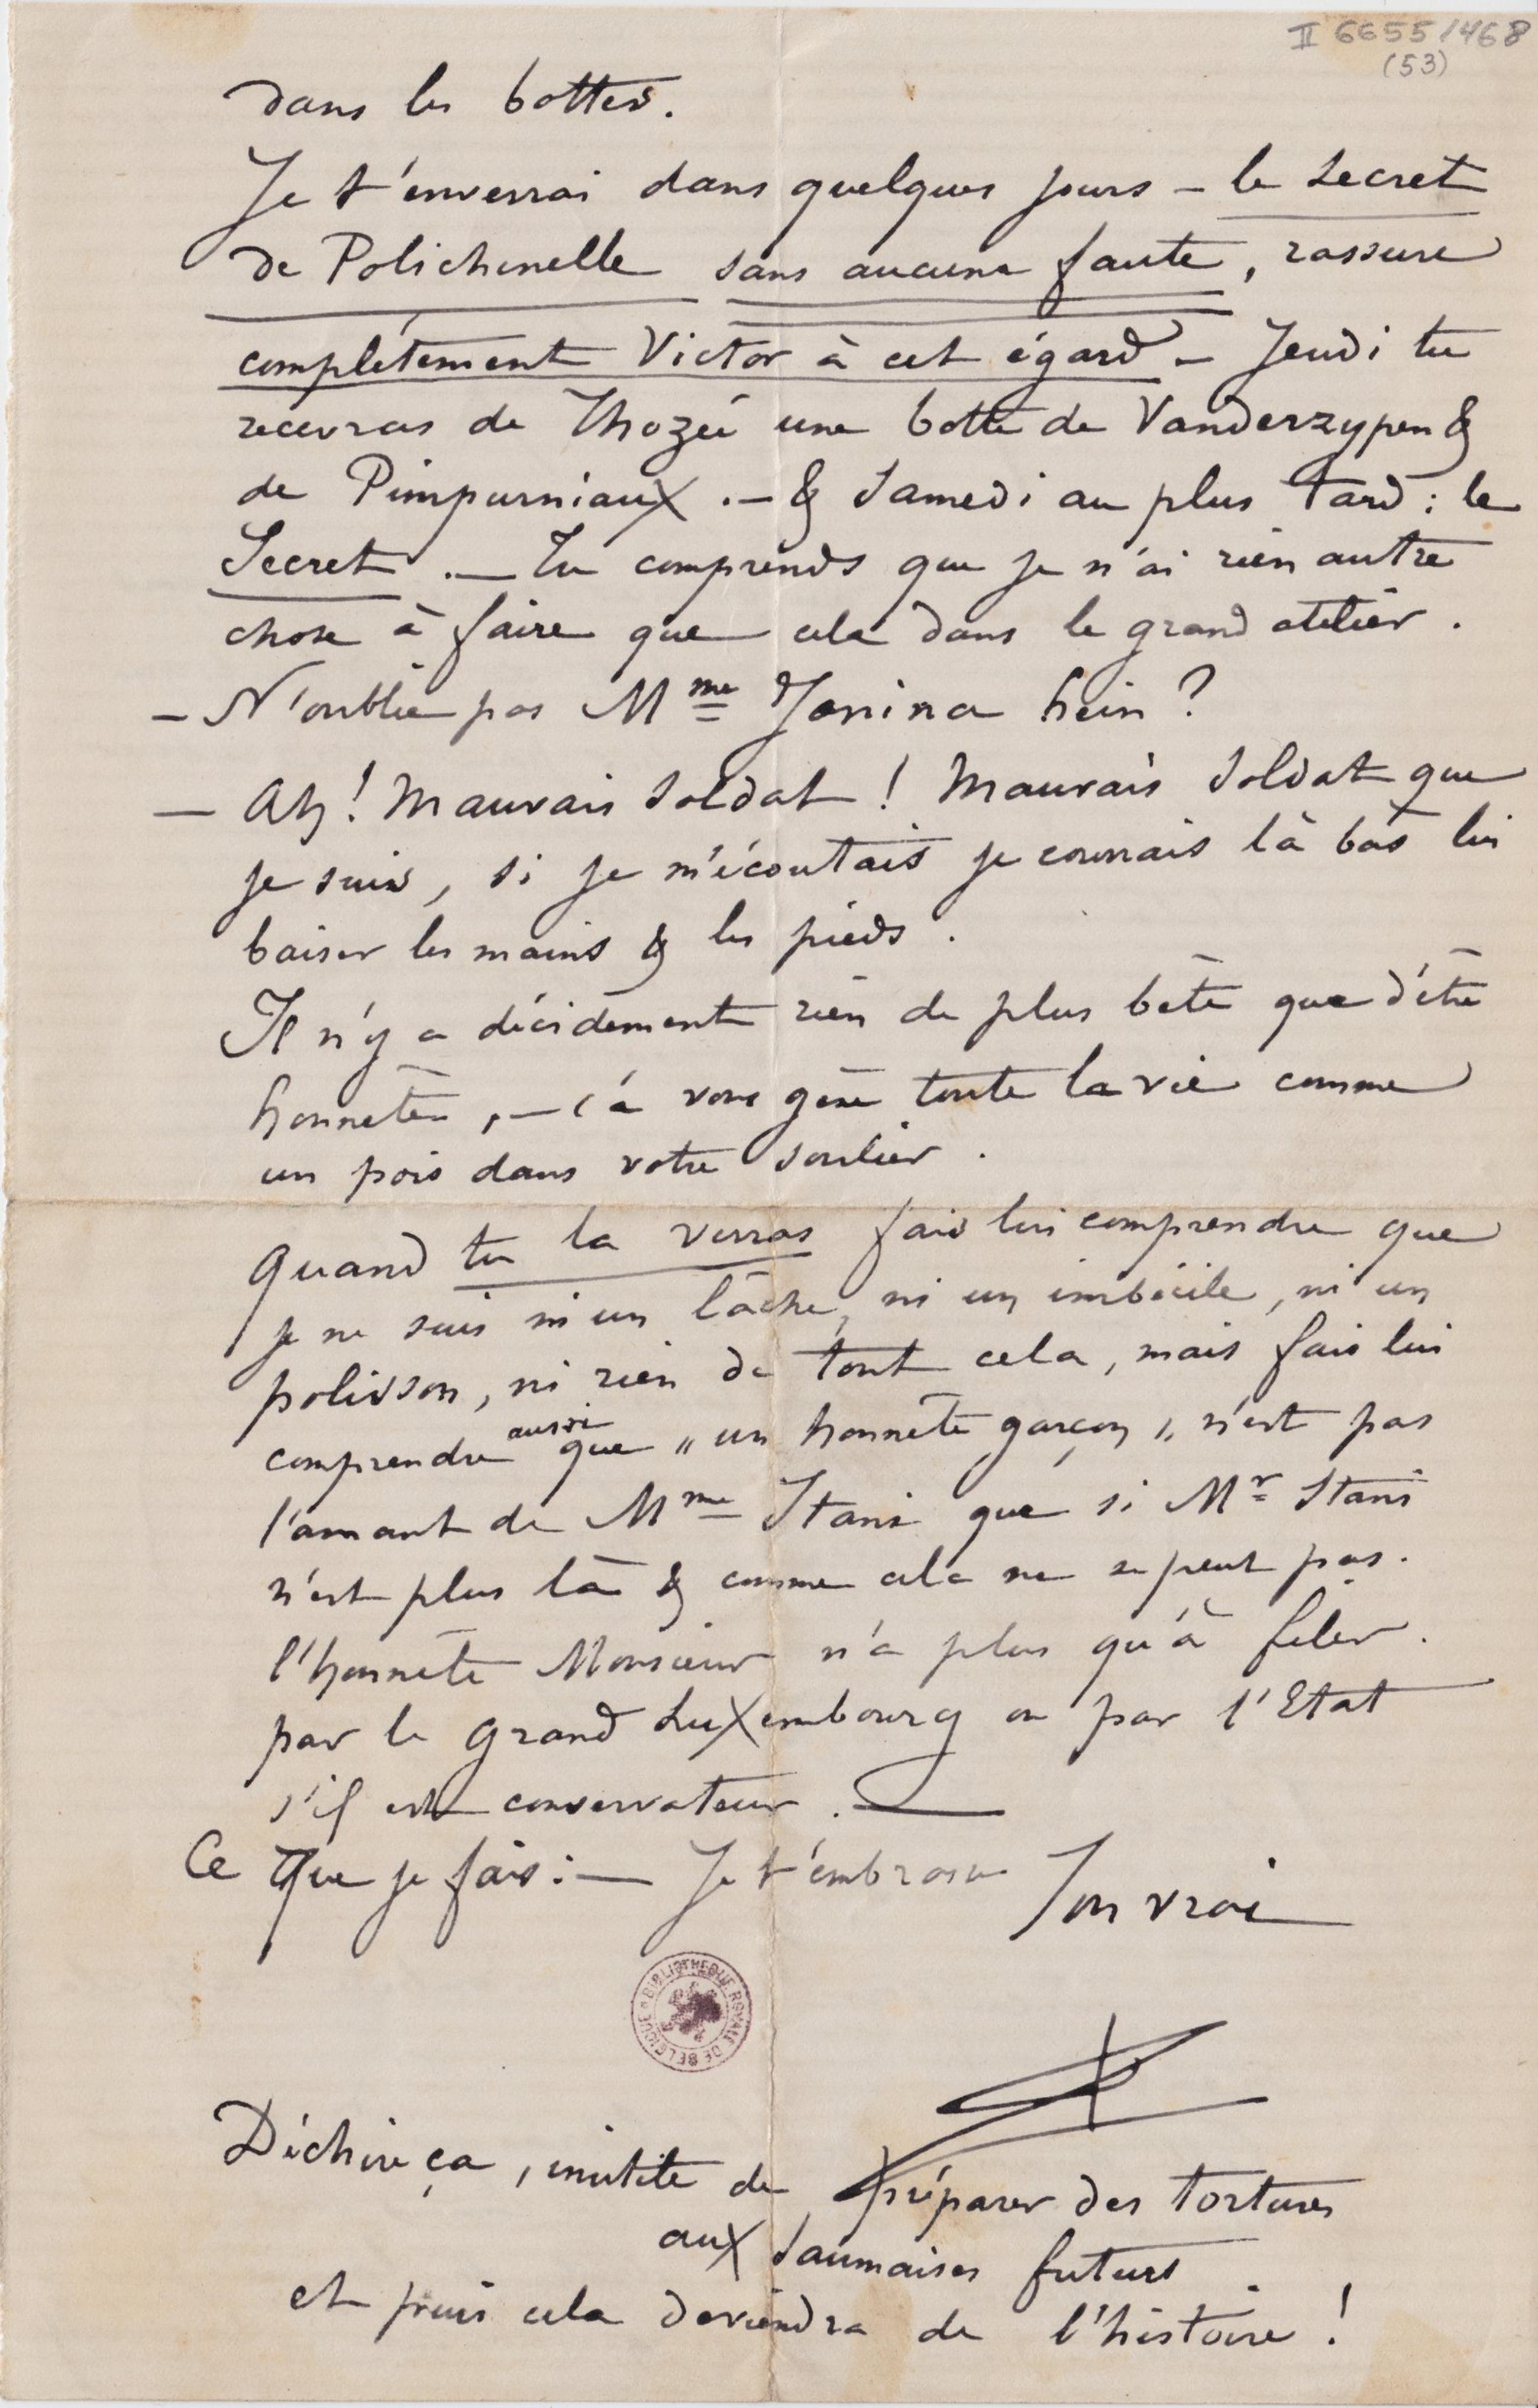 II 6655/468
(53)
dans les bottes.
Je t'enverrai dans quelques jours – le Secret
de Polichinelle sans aucune faute, rassure
complètement Victor à cet égard – Jeudi tu
recevras de Thozée une botte de Vanderzypen &
de Pimpurniaux. – & Samedi au plus tard : le
Secret. – Tu comprends que je n'ai rien autre
chose à faire que cela dans le grand atelier.
– N'oublie pas Mme Janina hein ?
– Ah ! Mauvais soldat ! Mauvais soldat que
je suis, si je m'écoutais je courrais là bas lui
baiser les mains & les pieds.
Il n'y a décidément rien de plus bête que d'être
honnête, – ça vous gêne toute la vie comme
un pois dans votre soulier.
Quand tu la verras fais lui comprendre que
je ne suis ni un lâche, ni un imbécile, ni un
polisson, ni rien de tout cela, mais fais lui
comprendre aussi que „ un honnête garçon „ n'est pas
l'amant de Mme Stani que si Mr Stani
n'est plus là & comme cela ne se peut pas.
l'honnête Monsieur n'a plus qu'à filer.
par le grand Luxembourg ou par l'Etat
s'il est conservateur.
Ce que je fais : – Je t'embrasse
Ton vrai
BIBLIOTHEQUE ROYALE DE BELGIQUE
Déchire ça, inutile de préparer des tortures
aux Saumaises futurs
et puis cela deviendra de l'histoire !